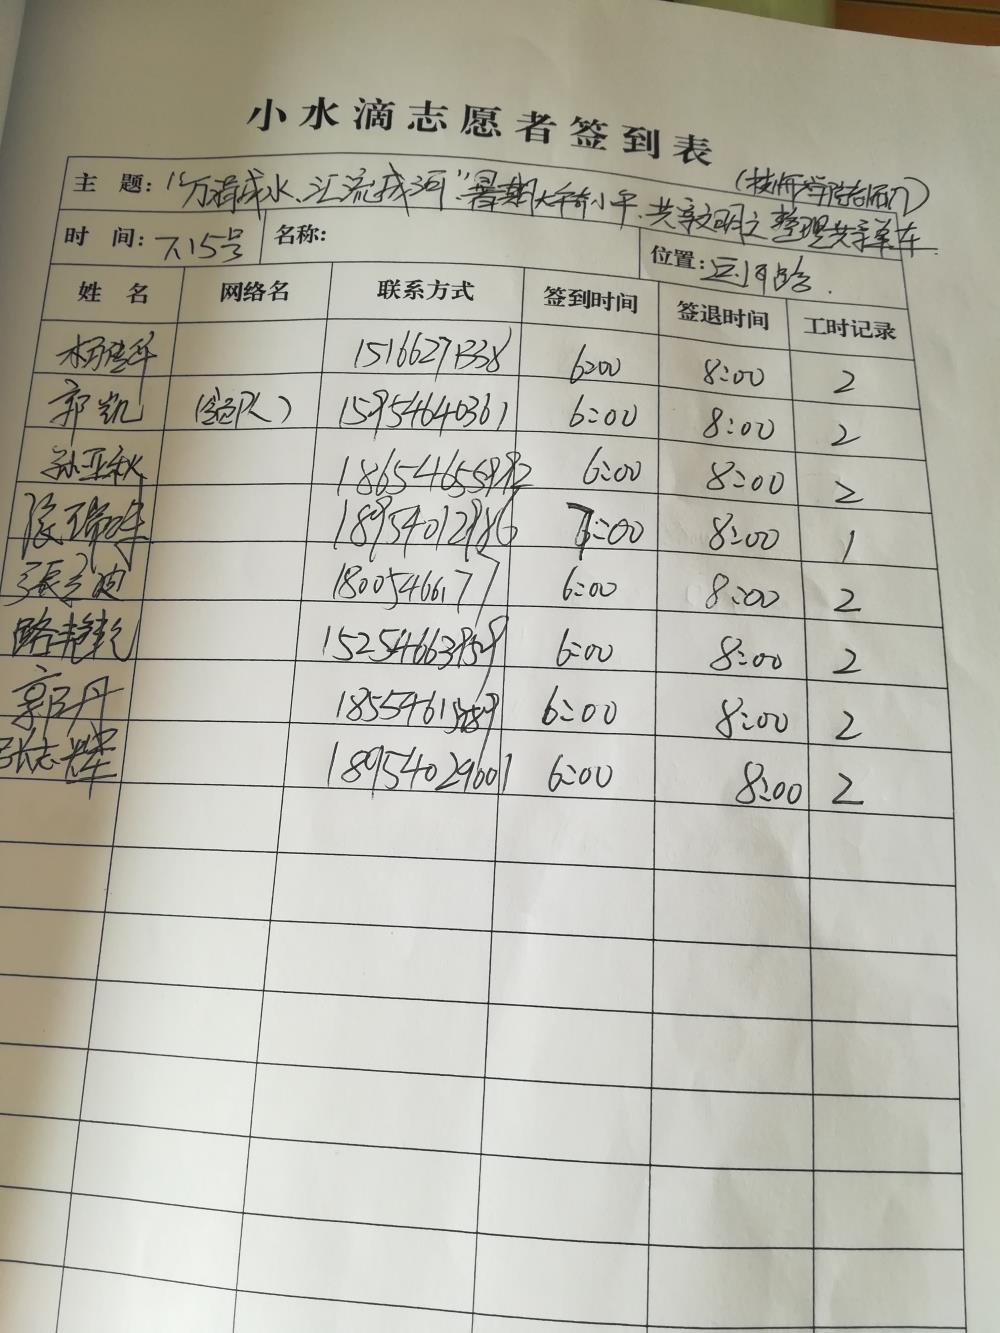 小水滴志愿者签到表
(技师学院老师)
主 题: "万滴成水、汇流成河"暑期大手牵小手.共享文明之整理共享单车
时 间: 7.15号 名称: 位置: 运河路.
姓 名 网络名 联系方式 签到时间 签退时间 工时记录
15166271338 6:00 8:00 2
郭凯 15954640361 6:00 8:00 2
孙亚秋 18654655992 6:00 8:00 2
18954012986 7:00 8:00 1
6:00 8:00 2
路艳乾 15254663959 6:00 8:00 2
郭丹 6:00 8:00 2
张志辉 18954029001 6:00 8:00 2